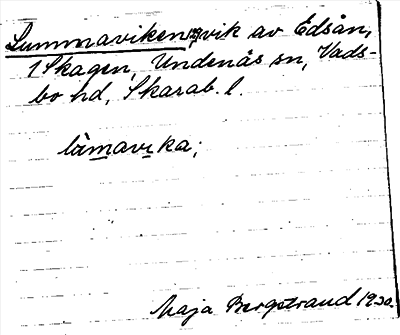 Lummaviken, vik av Edsån,
i Skagen, Undenäs sn, Vads-
bo hd, Skarab. l.
làmavıka;
Maja Bergstrand 1930.